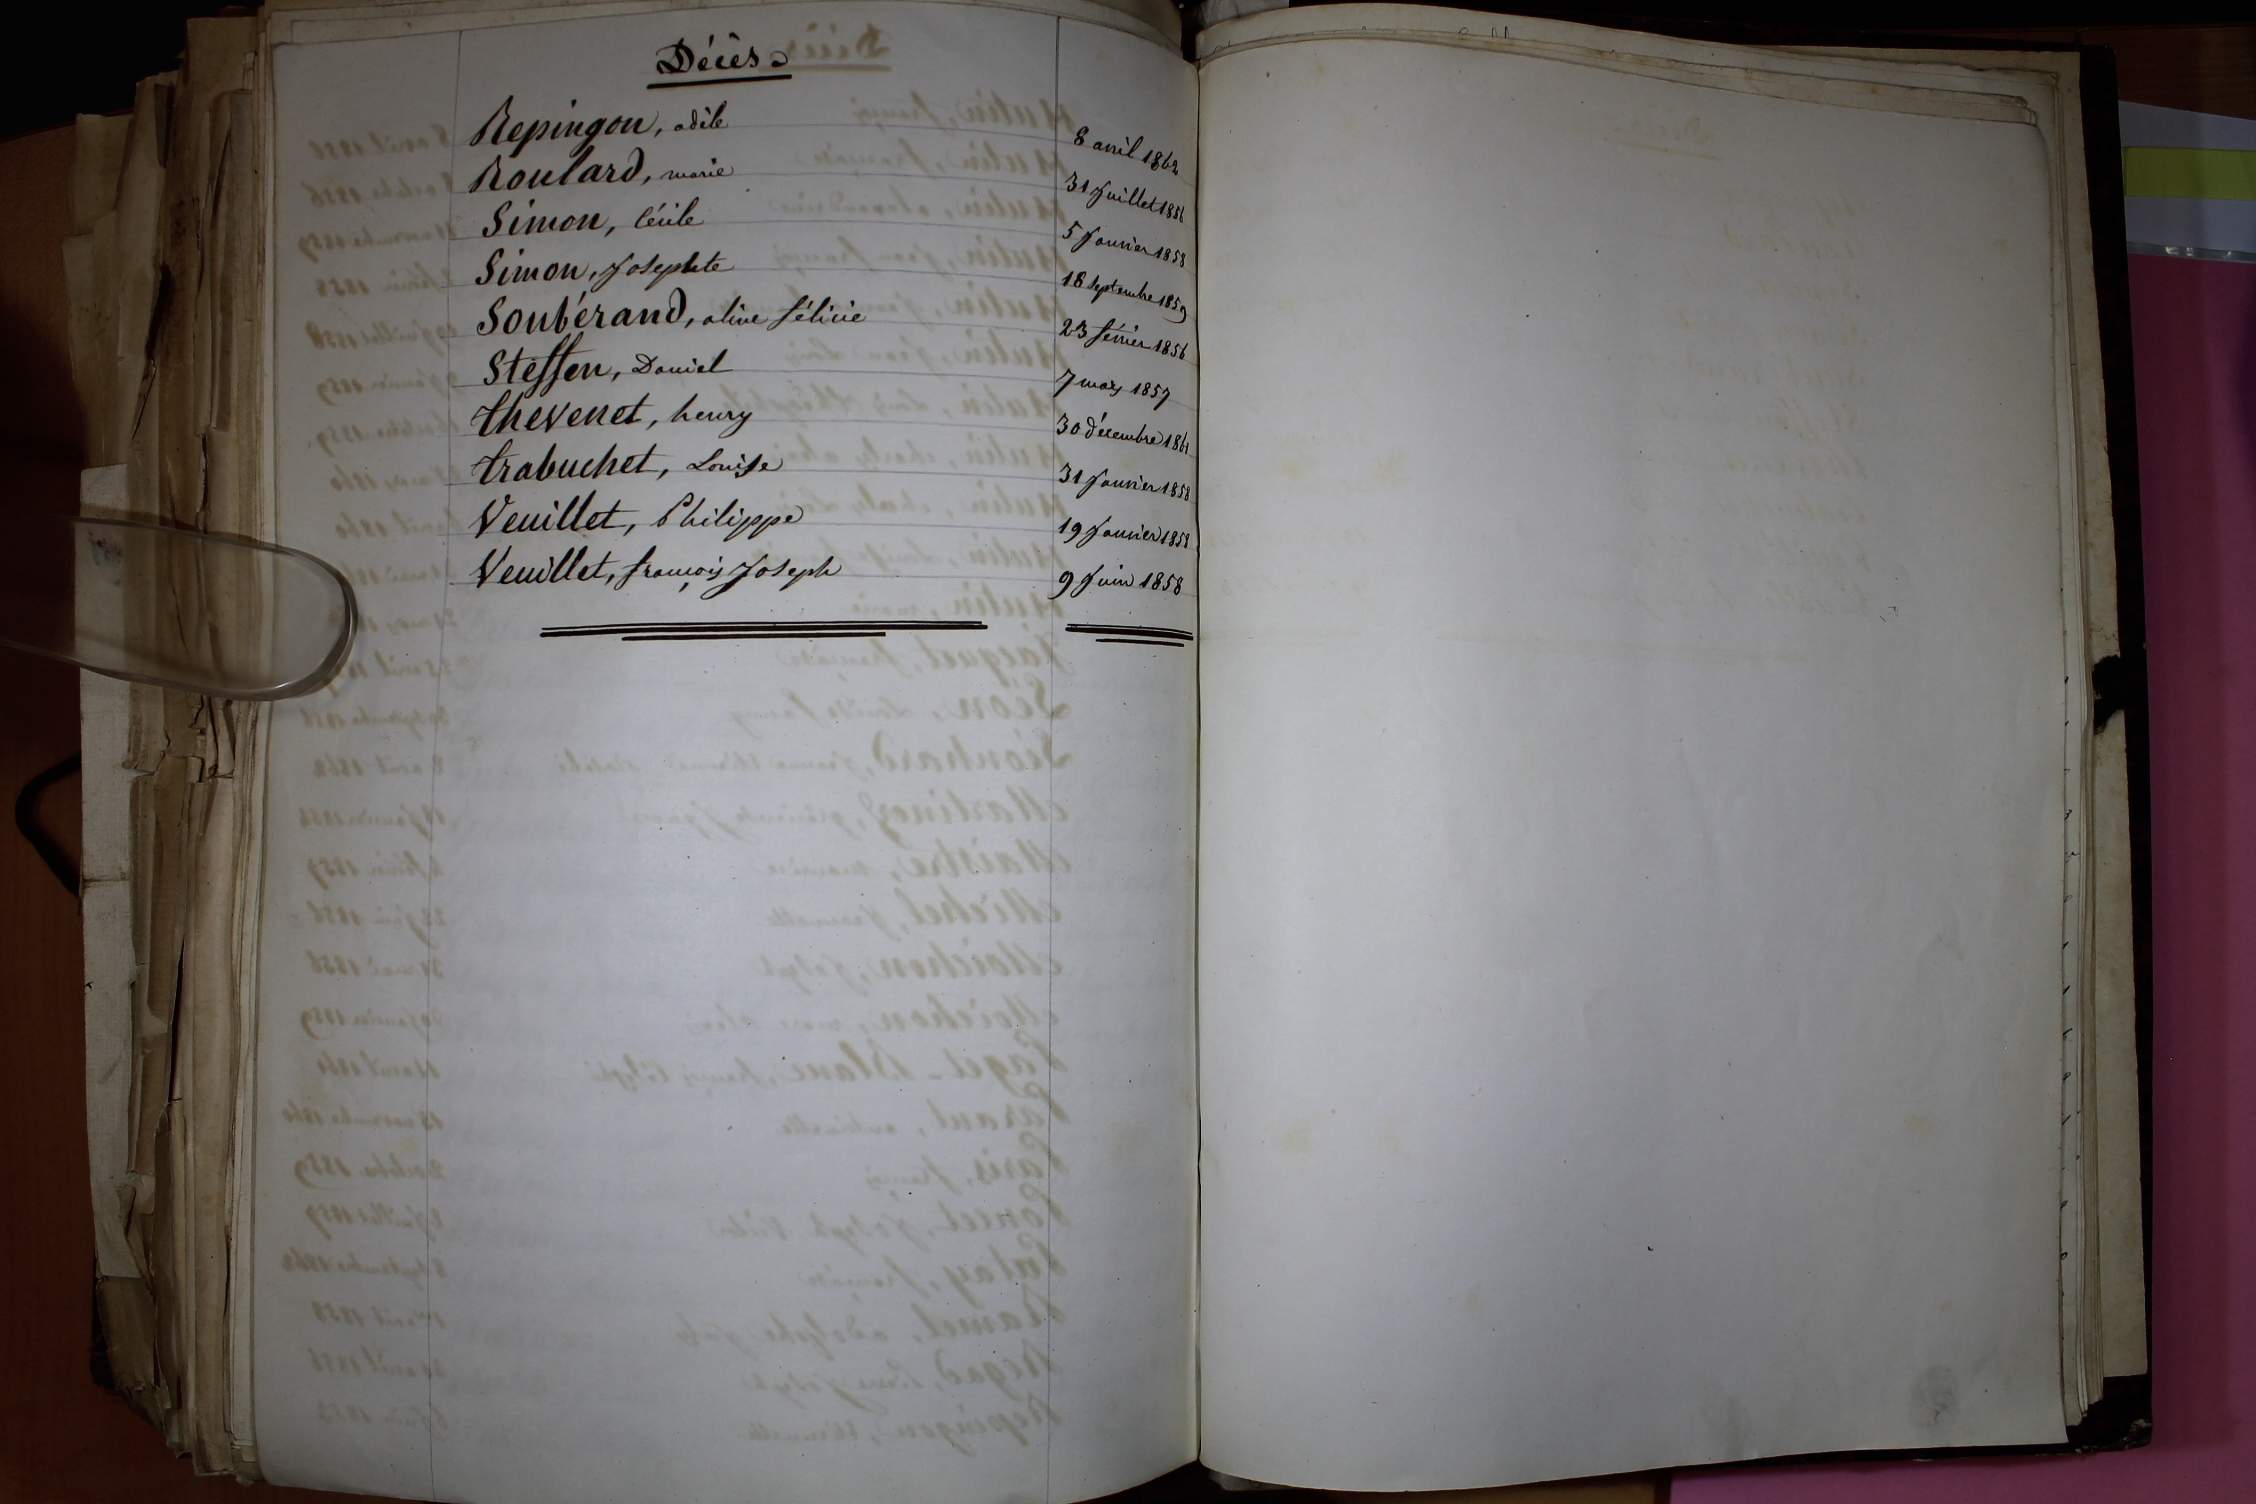 Décès
Repingon, adèle 8 avril 1862
Roulard, marie 31 Juillet 1856
Simon, Cécile 5 Janvier 1858
Simon, Josephte 18 septembre 1859
Soubérand, aline félicie 23 février 1856
Steffen, Daniel 7 mars 1857
thevenet, henry 30 décembre 1861
trabuchet, Louise 31 Janvier 1858
Veuillet, Philippe 19 Janvier 1858
Veuillet, françois Joseph 9 Juin 1858